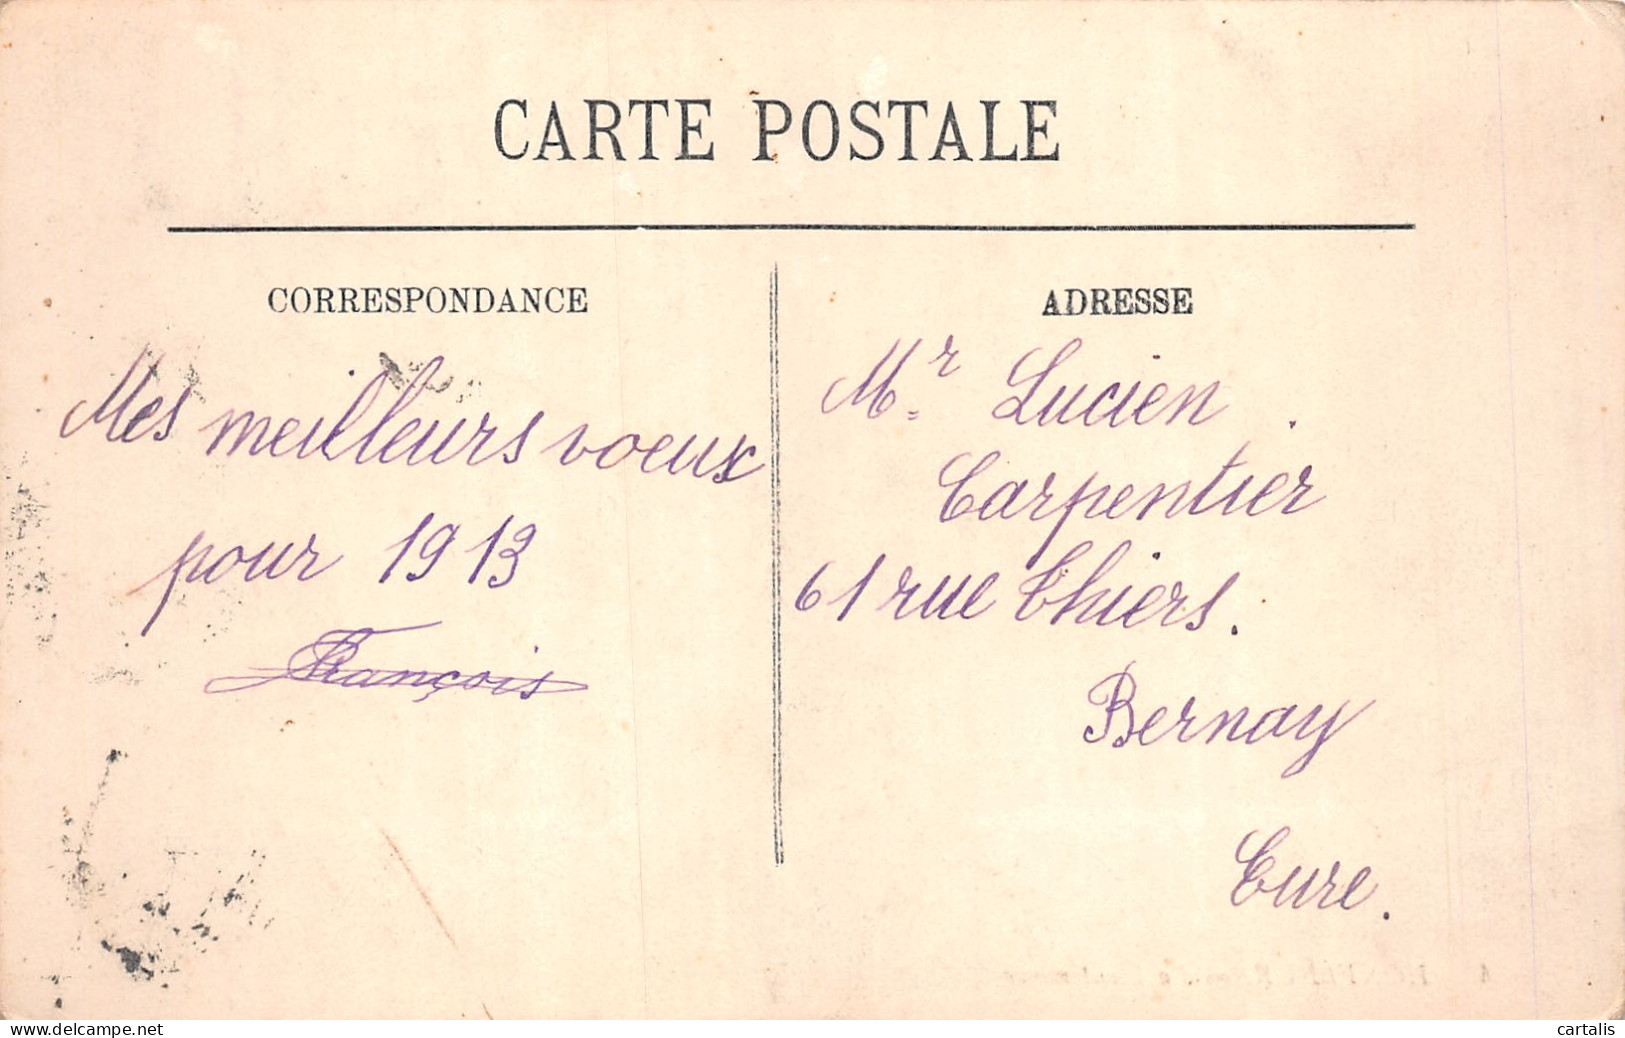 CARTE POSTALE
CORRESPONDANCE
Mes meilleurs voeux
pour 1913
François
ADRESSE
Mr. Lucien
Carpentier
61 rue Thiers.
Bernay
Eure.
delcampe.net
cartalis